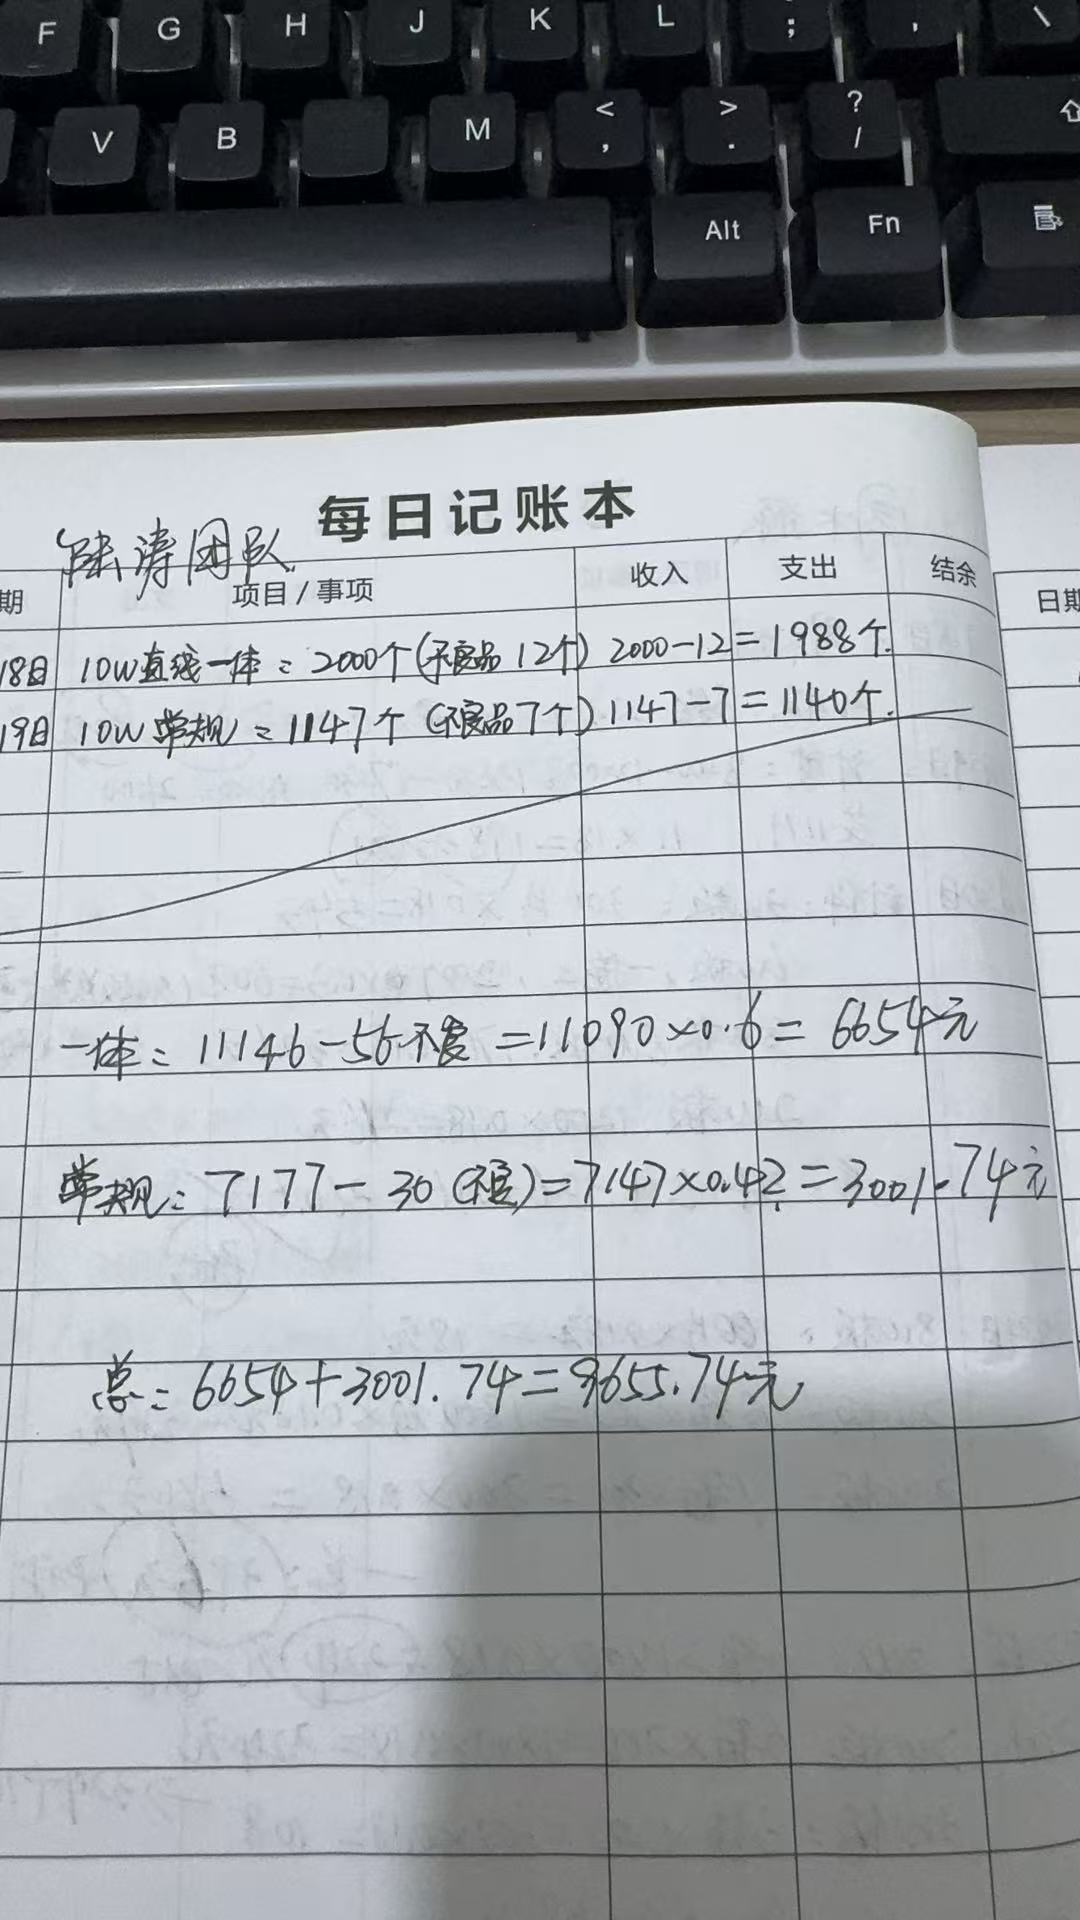 F G H J K L ; , \
V B M < , > . ? /
Alt Fn
每日记账本
陆涛团队
期 项目/事项 收入 支出 结余 日期
18日 10W直线一体：2000个(不良品12个) 2000-12=1988个.
19日 10W常规：1147个 (不良品7个) 1147-7=1140个.
一体：11146-56不良=11090×0.6=6654元
常规：7177-30(不良)=7147×0.42=3001.74元
总：6654+3001.74=9655.74元